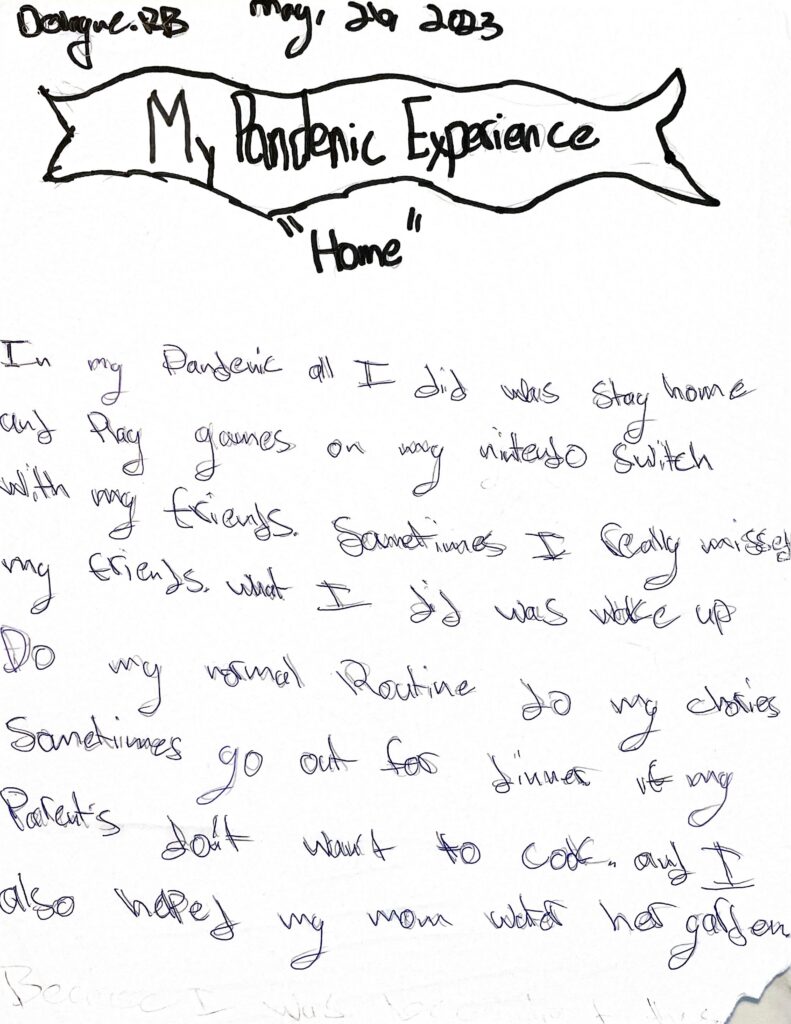 May, 26 2023
My Pandenic Experience
"Home"
In my Pandenic all I did was stay home
and Play games on my nintendo switch
with my friends. Sometimes I really missed
my friends. what I did was woke up
Do my normal Routine do my chories
Sometiimes go out for dinner if my
Parent's don't want to cook. and I
also heped my mom water her garden
Because I was